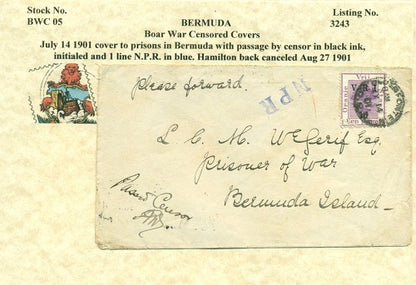 Stock No.
BWC 05
BERMUDA
Listing No.
3243
Boar War Censored Covers
July 14 1901 cover to prisons in Bermuda with passage by censor in black ink,
initialed and 1 line N.P.R. in blue. Hamilton back canceled Aug 27 1901
Please forward.
NPR
Vrij
V.R.I.
Oranje
L. C. M. Wegerif Esq.
Prisoner of War
Bermuda Island
Passed Censor